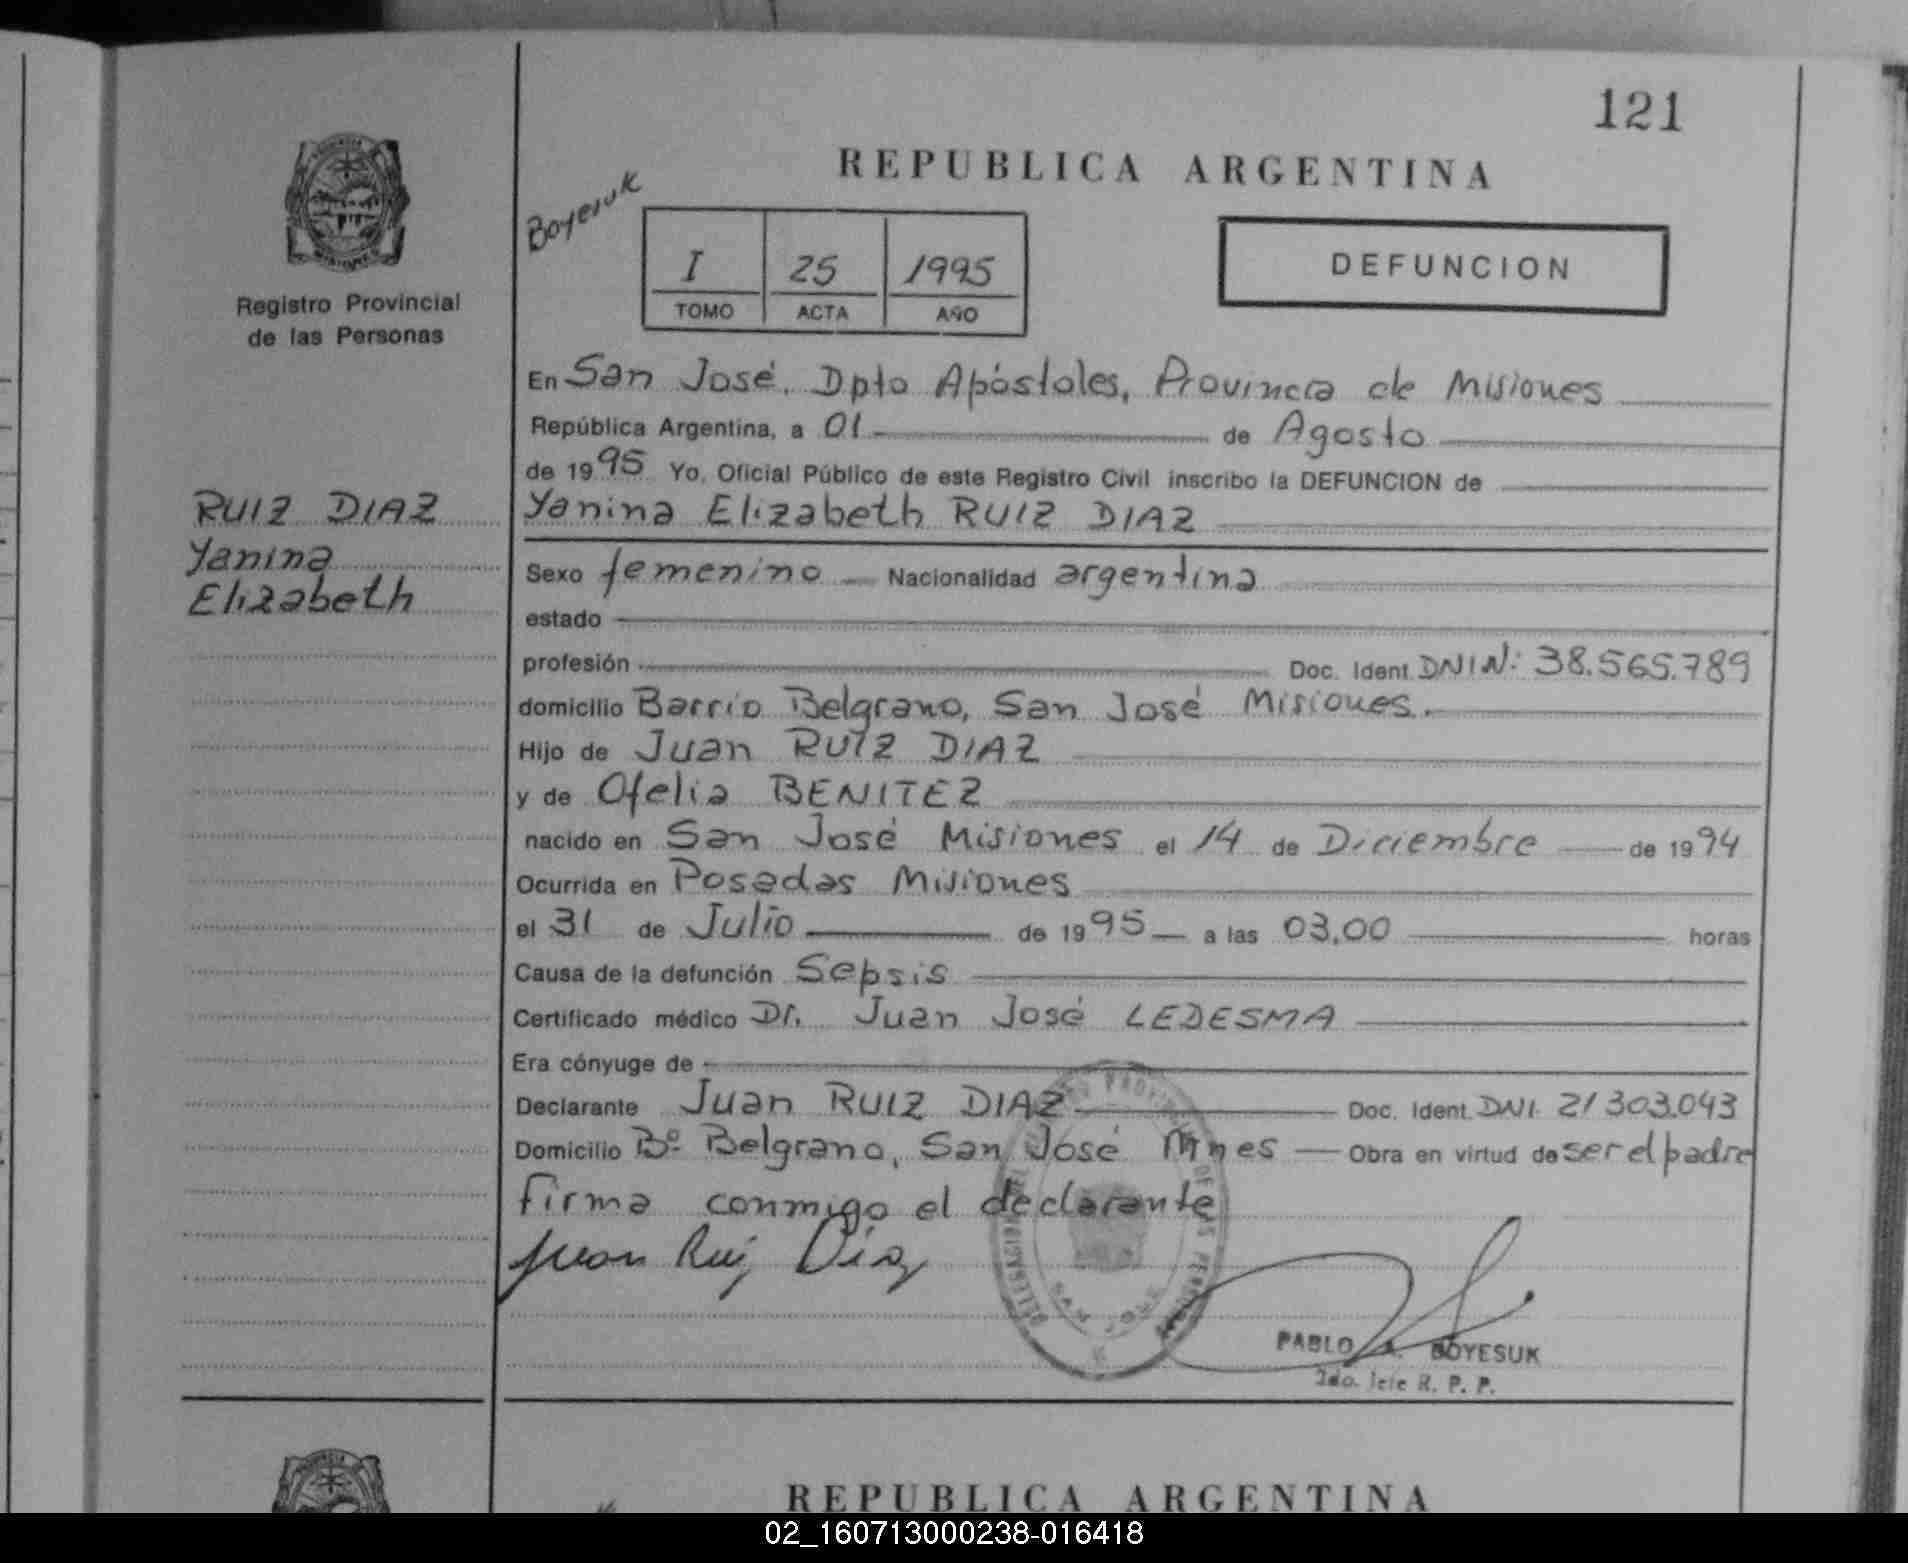 121
REPUBLICA ARGENTINA
Boyesuk
I 25 1995
TOMO ACTA AÑO
DEFUNCION
Registro Provincial
de las Personas
RUIZ DIAZ
Yanina
Elizabeth
En San José, Dpto Apóstoles, Provincia de Misiones
República Argentina, a 01 de Agosto
de 1995 Yo, Oficial Público de este Registro Civil inscribo la DEFUNCION de
Yanina Elizabeth RUIZ DIAZ
Sexo femenino Nacionalidad argentina
estado
profesión Doc. Ident. DNI N: 38.565.789
domicilio Barrio Belgrano, San José Misiones.
Hijo de Juan RUIZ DIAZ
y de Ofelia BENITEZ
nacido en San José Misiones el 14 de Diciembre de 1994
Ocurrida en Posadas Misiones
el 31 de Julio de 1995 a las 03,00 horas
Causa de la defunción Sepsis
Certificado médico Dr. Juan José LEDESMA
Era cónyuge de
Declarante Juan RUIZ DIAZ Doc. Ident. DNI. 21303.043
Domicilio Bº Belgrano, San José Mnes Obra en virtud de ser el padre
firma conmigo el declarante
Juan Ruiz Diaz
PABLO A. BOYESUK
2do. Jefe R. P. P.
REPUBLICA ARGENTINA
02_160713000238-016418